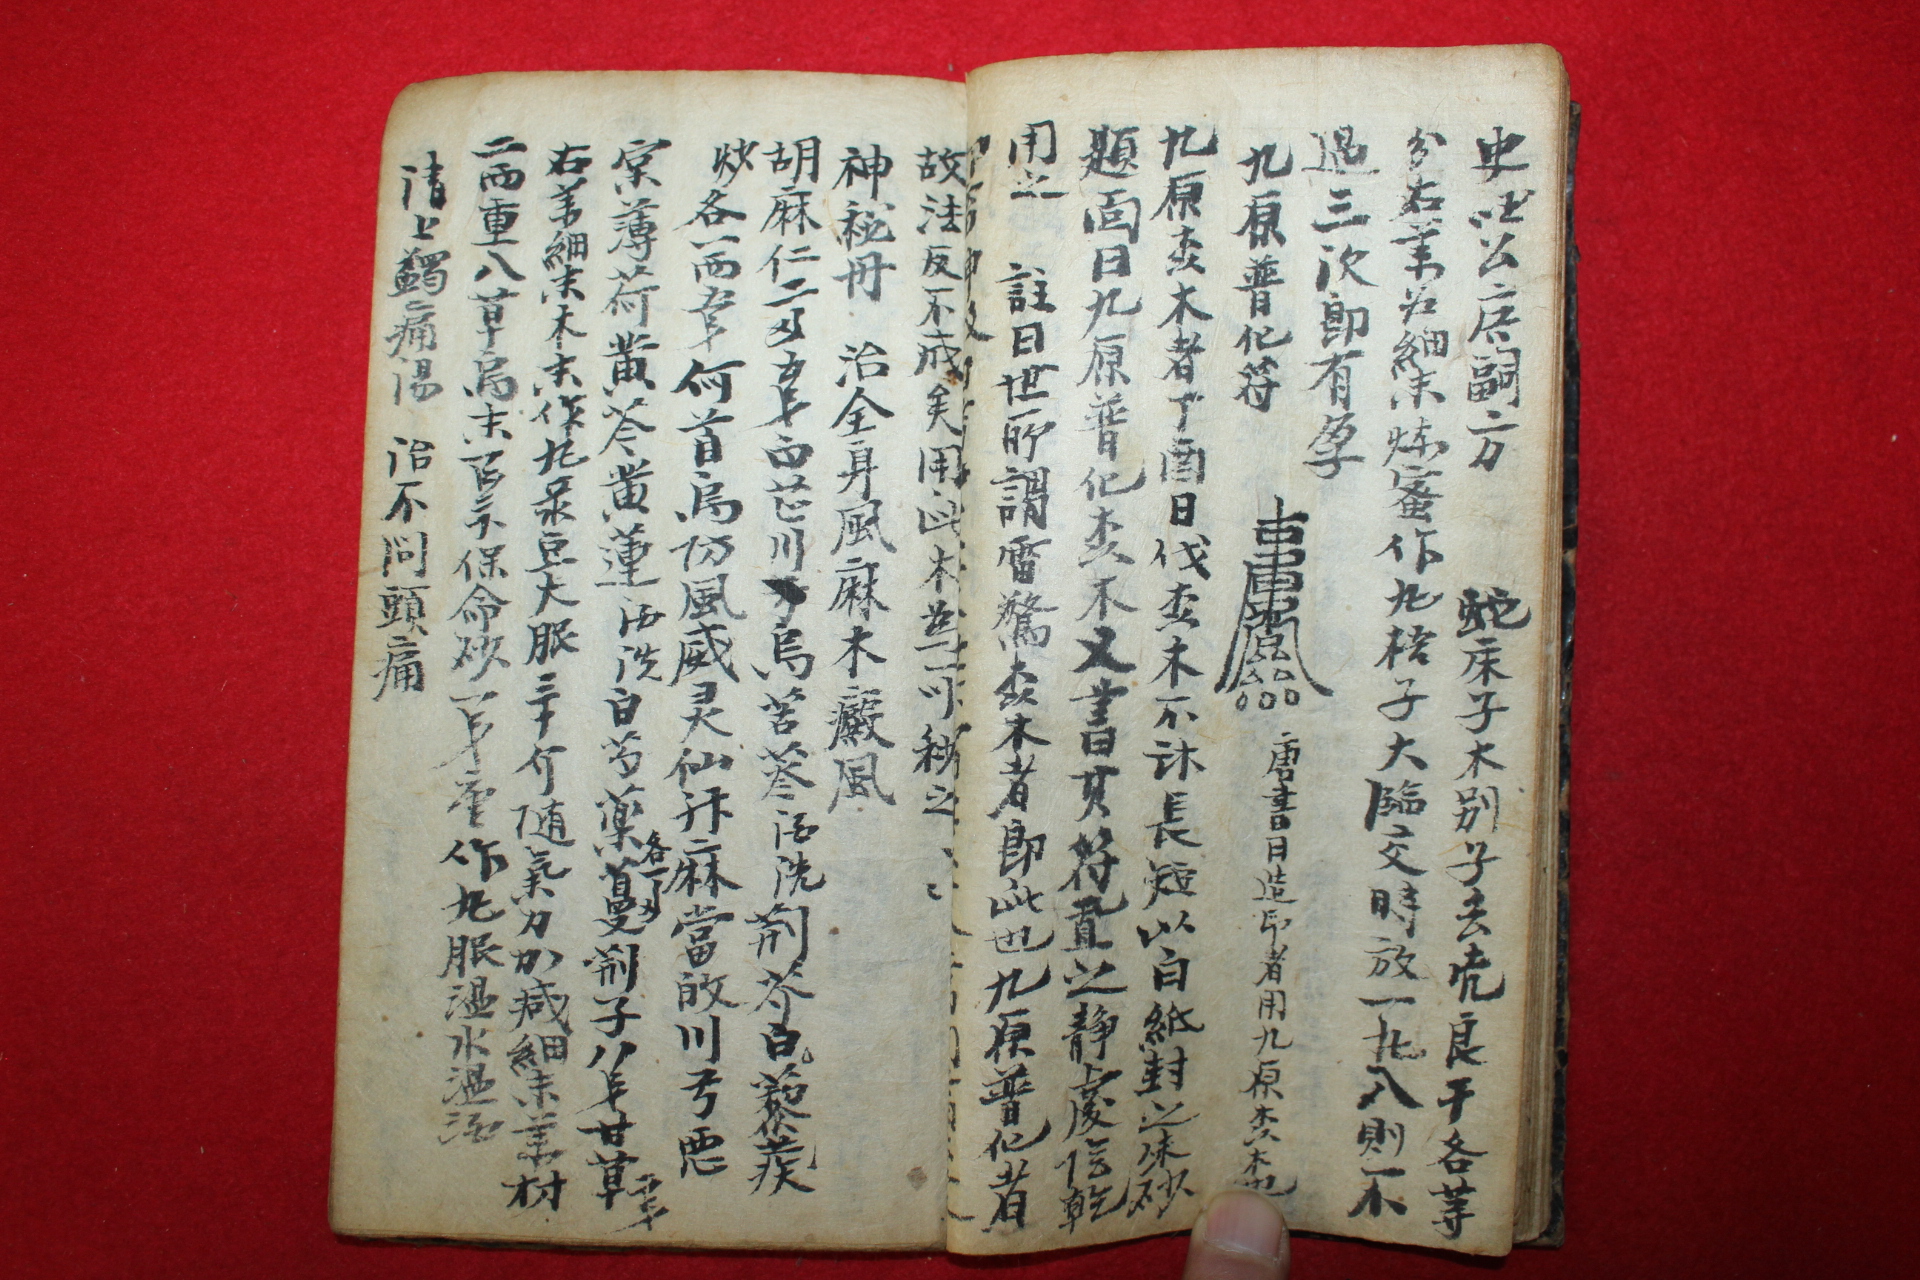 史吐公广嗣方 蛇床子木別子去壳良干各等
分右末為細末炼蜜作丸梧子大臨交時放一丸入則不
過三次即有孕
九原普化符 唐書曰造印者用九原杏木也
九原杏木者丁酉日伐杏木不計長短以白紙封之朱砂
題面曰九原普化杏木又書其符置之靜處陰乾
用之 註曰世所謂雷驚杏木者即此也九原普化者
故法反不成矣用此木
神秘丹 治全身風麻木癜風
胡麻仁二 白芷川烏苦蔘酒洗荊芥白蒺藜
炒各一兩 何首烏防風威灵仙升麻當敀川芎
薄荷黃芩黃蓮酒洗白芍藥蔓荊子 甘草
右 細末木末作丸彔豆大服三十介随氣力加减細末 材
二兩重八草烏末 保命砂 作丸服温水温酒
清上蠲痛湯 治不問頭痛